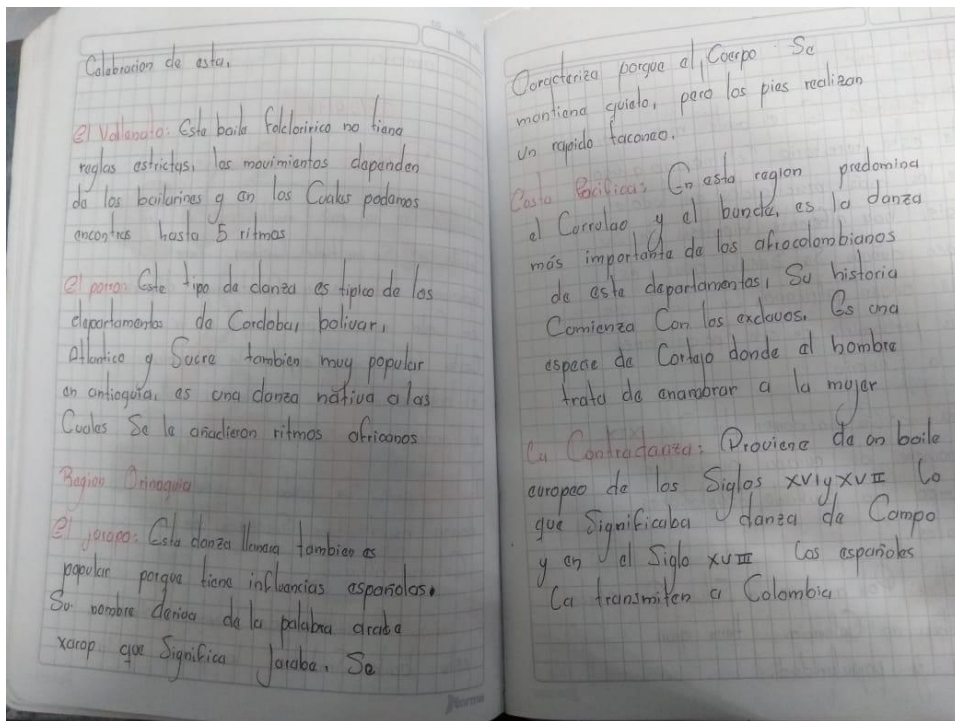 Celebracion de esta.
El Vallenato: Este baile folcloririco no tiene
reglas estrictas, los movimientos dependen
de los bailarines y en los Cuales podemos
encontras hasta 5 ritmos
El porro: Este tipo de danza es tipico de los
departamentos de Cordoba, bolivar,
Atlantico y Sucre tambien muy popular
en antioquia, es una danza nativa a las
Cuales Se le añadieron ritmos africanos
Region Orinoquia
El joropo: Esta danza llanera tambien es
popular porque tiene influencias españolas.
Su nombre deriva de la palabra arabe
xarop que Significa Jarabe. Se
Norma
Caracteriza porque el Cuerpo Se
mantiene quieto, pero los pies realizan
un rapido taconeo.
Costa Pacifica: En esta region predomina
el Currulao y el bunde, es la danza
más importante de los afrocolombianos
de este departamentos, Su historia
Comienza Con los exclavos. Es una
especie de Cortejo donde el hombre
trata de enamorar a la mujer
La Contradanza: Proviene de un baile
europeo de los Siglos XVI y XVII Lo
que Significaba danza de Campo
y en el Siglo XVIII Los españoles
La transmiten a Colombia